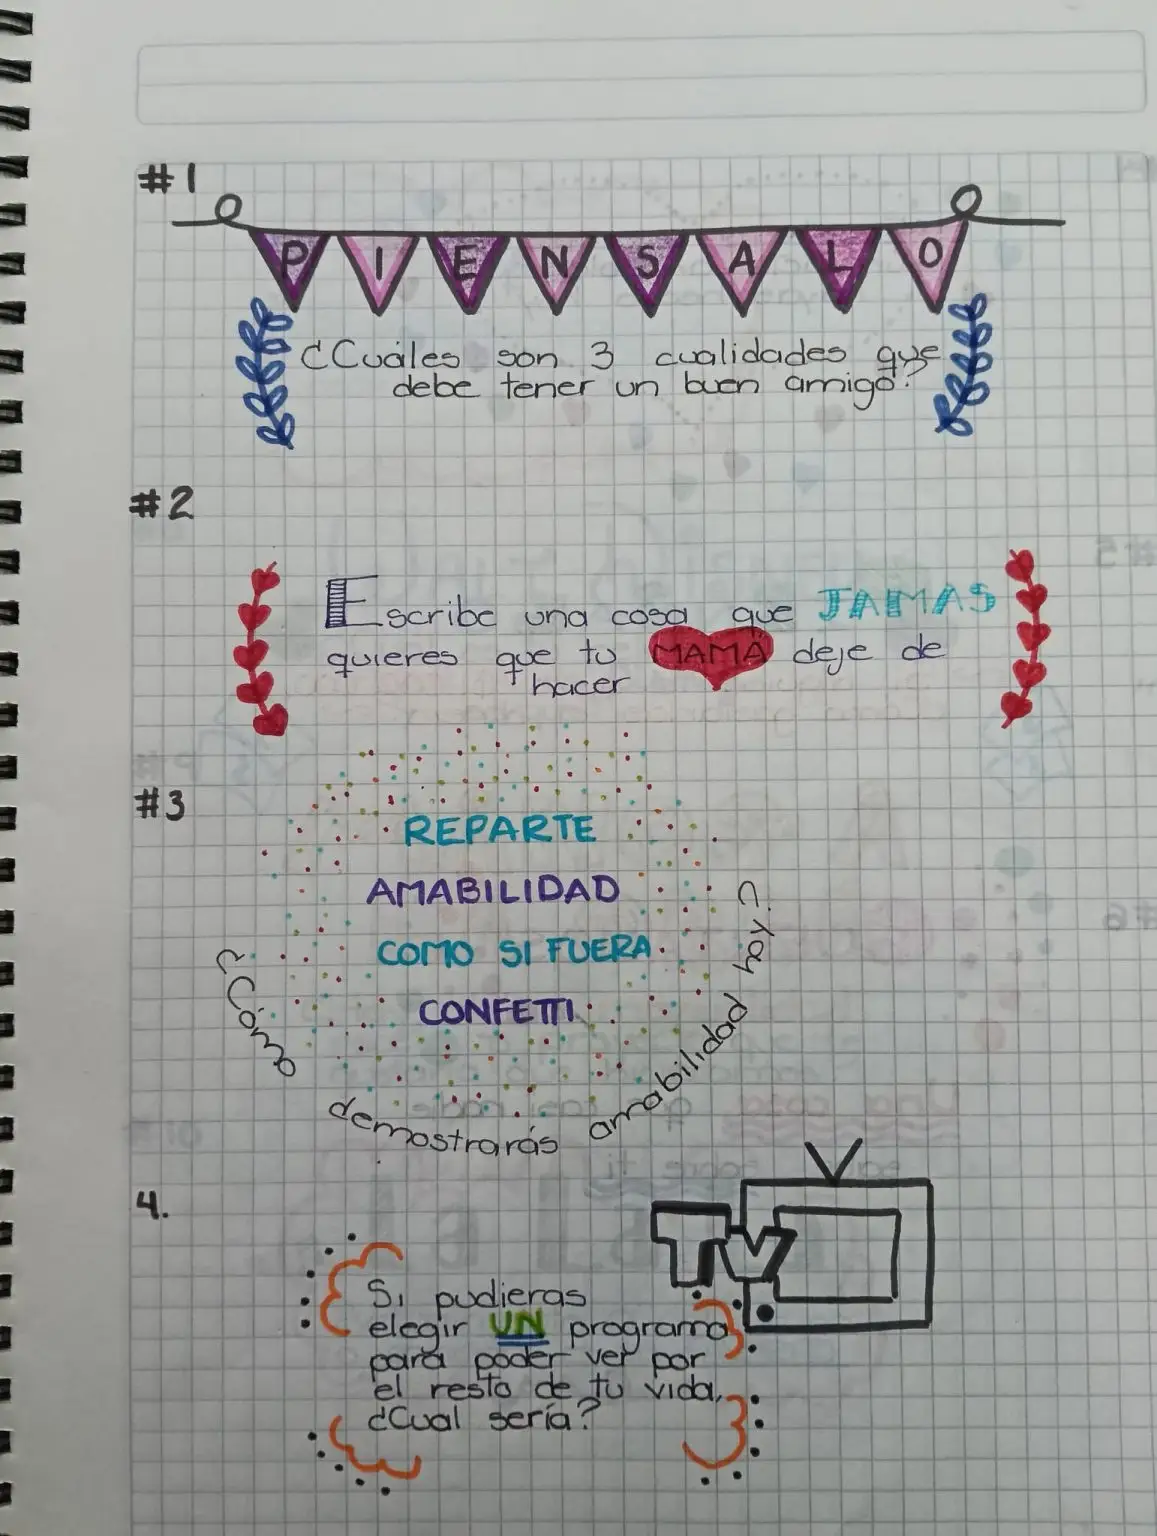 #1
PIENSALO
¿Cuáles son 3 cualidades que
debe tener un buen amigo?
#2
Escribe una cosa que JAMAS
quieres que tu MAMÁ deje de
hacer
#3
REPARTE
AMABILIDAD
COMO SI FUERA
CONFETTI
¿Cómo demostrarás amabilidad hoy?
4.
TV
Si pudieras
elegir UN programa
para poder ver por
el resto de tu vida,
¿Cual sería?